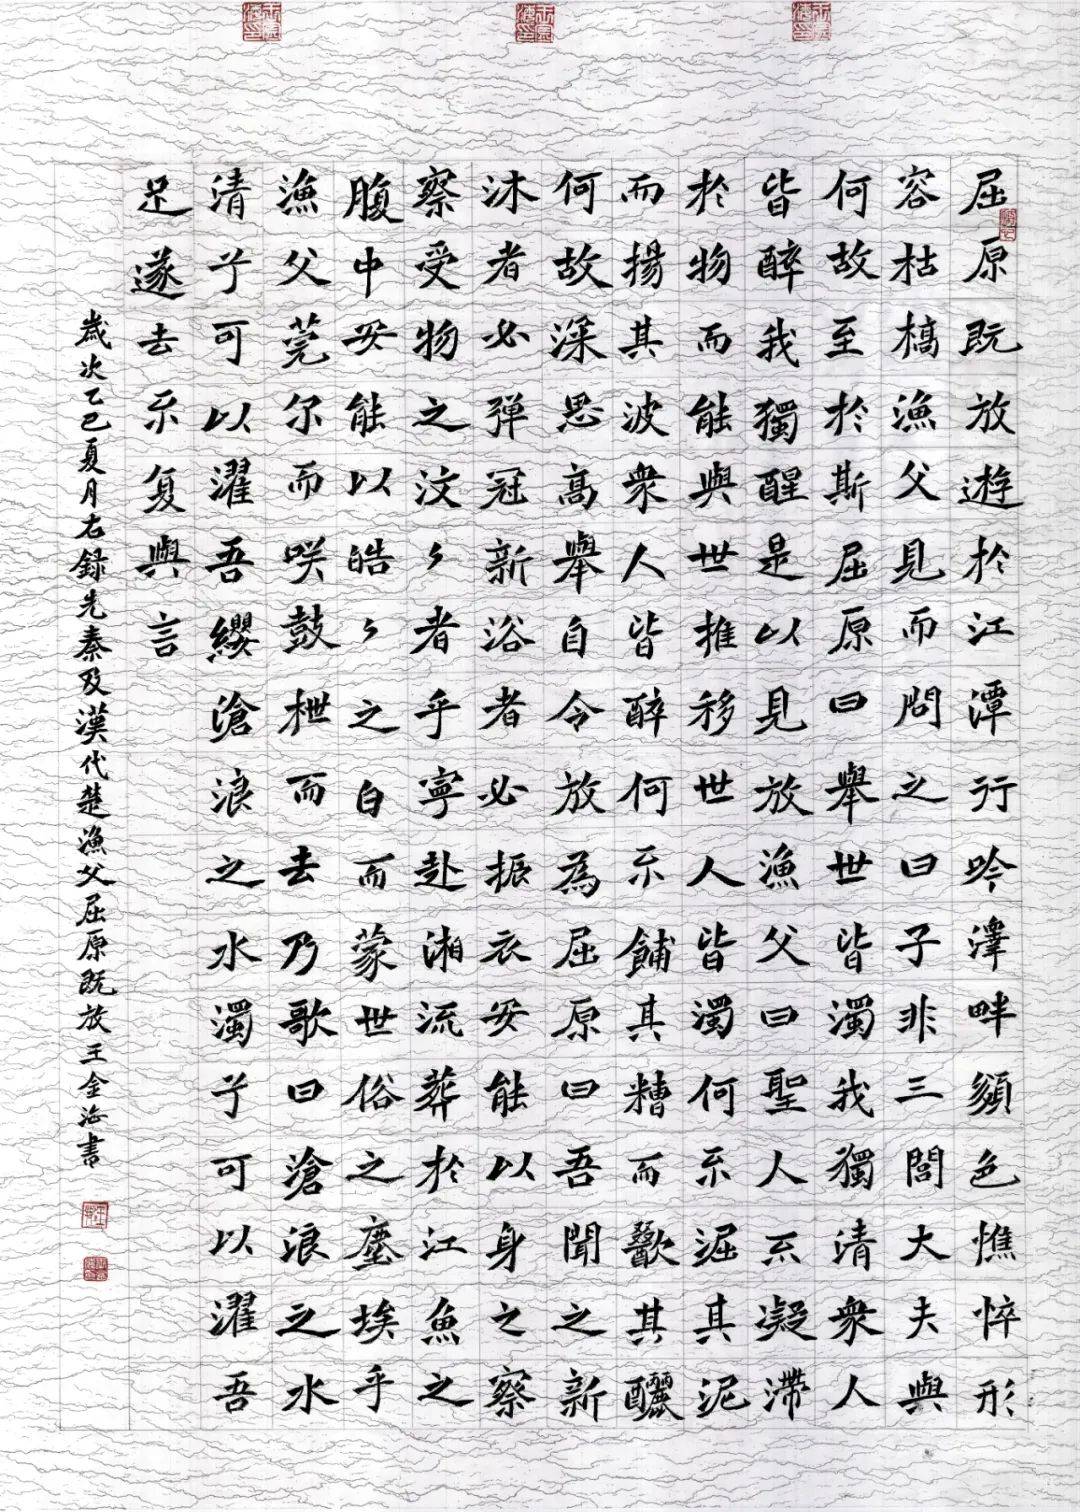 屈原既放遊於江潭行吟澤畔顏色憔悴形
容枯槁漁父見而問之曰子非三閭大夫與
何故至於斯屈原曰舉世皆濁我獨清衆人
皆醉我獨醒是以見放漁父曰聖人不凝滯
於物而能與世推移世人皆濁何不淈其泥
而揚其波衆人皆醉何不餔其糟而歠其釃
何故深思高舉自令放為屈原曰吾聞之新
沐者必彈冠新浴者必振衣安能以身之察
察受物之汶々者乎寧赴湘流葬於江魚之
腹中安能以皓々之白而蒙世俗之塵埃乎
漁父莞尔而咲鼓枻而去乃歌曰滄浪之水
清兮可以濯吾纓滄浪之水濁兮可以濯吾
足遂去不复與言
歲次乙巳夏月右錄先秦及漢代楚漁父屈原既放王金海書